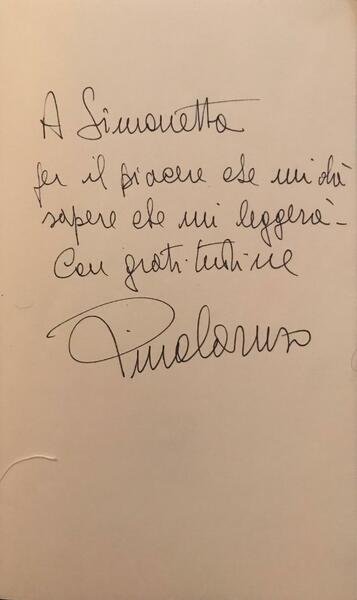 A Simonetta
per il piacere che mi dà
sapere che mi leggerà -
Con gratitudine
Pino Caruso